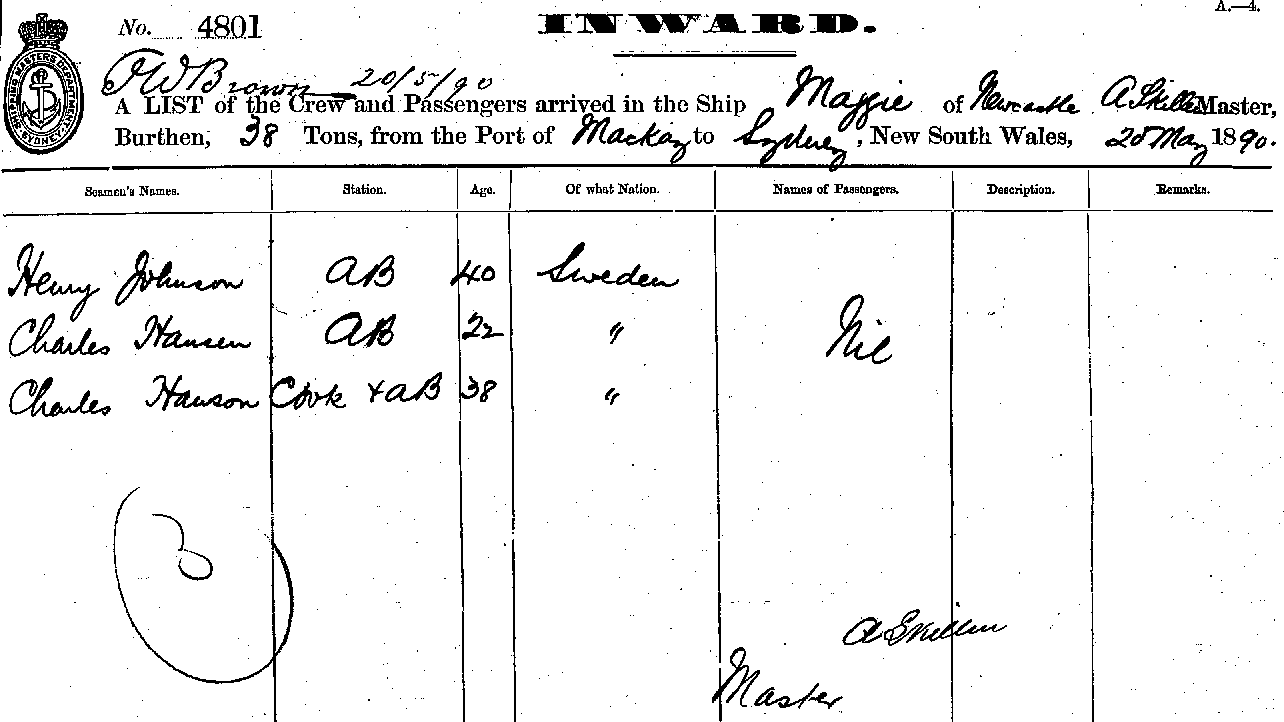 A.—4.
No. 4801 INWARD.
SHIPPING MASTERS DEPARTMENT SYDNEY
T W Brown 20/5/90
A LIST of the Crew and Passengers arrived in the Ship Maggie of Newcastle A Skillen Master,
Burthen, 38 Tons, from the Port of Mackay to Sydney, New South Wales, 20 May 1890.
Seamen's Names. Station. Age. Of what Nation. Names of Passengers. Description. Remarks.
Henry Johnson AB 40 Sweden
Charles Hansen AB 22 " Nil
Charles Hanson Cook + AB 38 "
3
A Skillen
Master